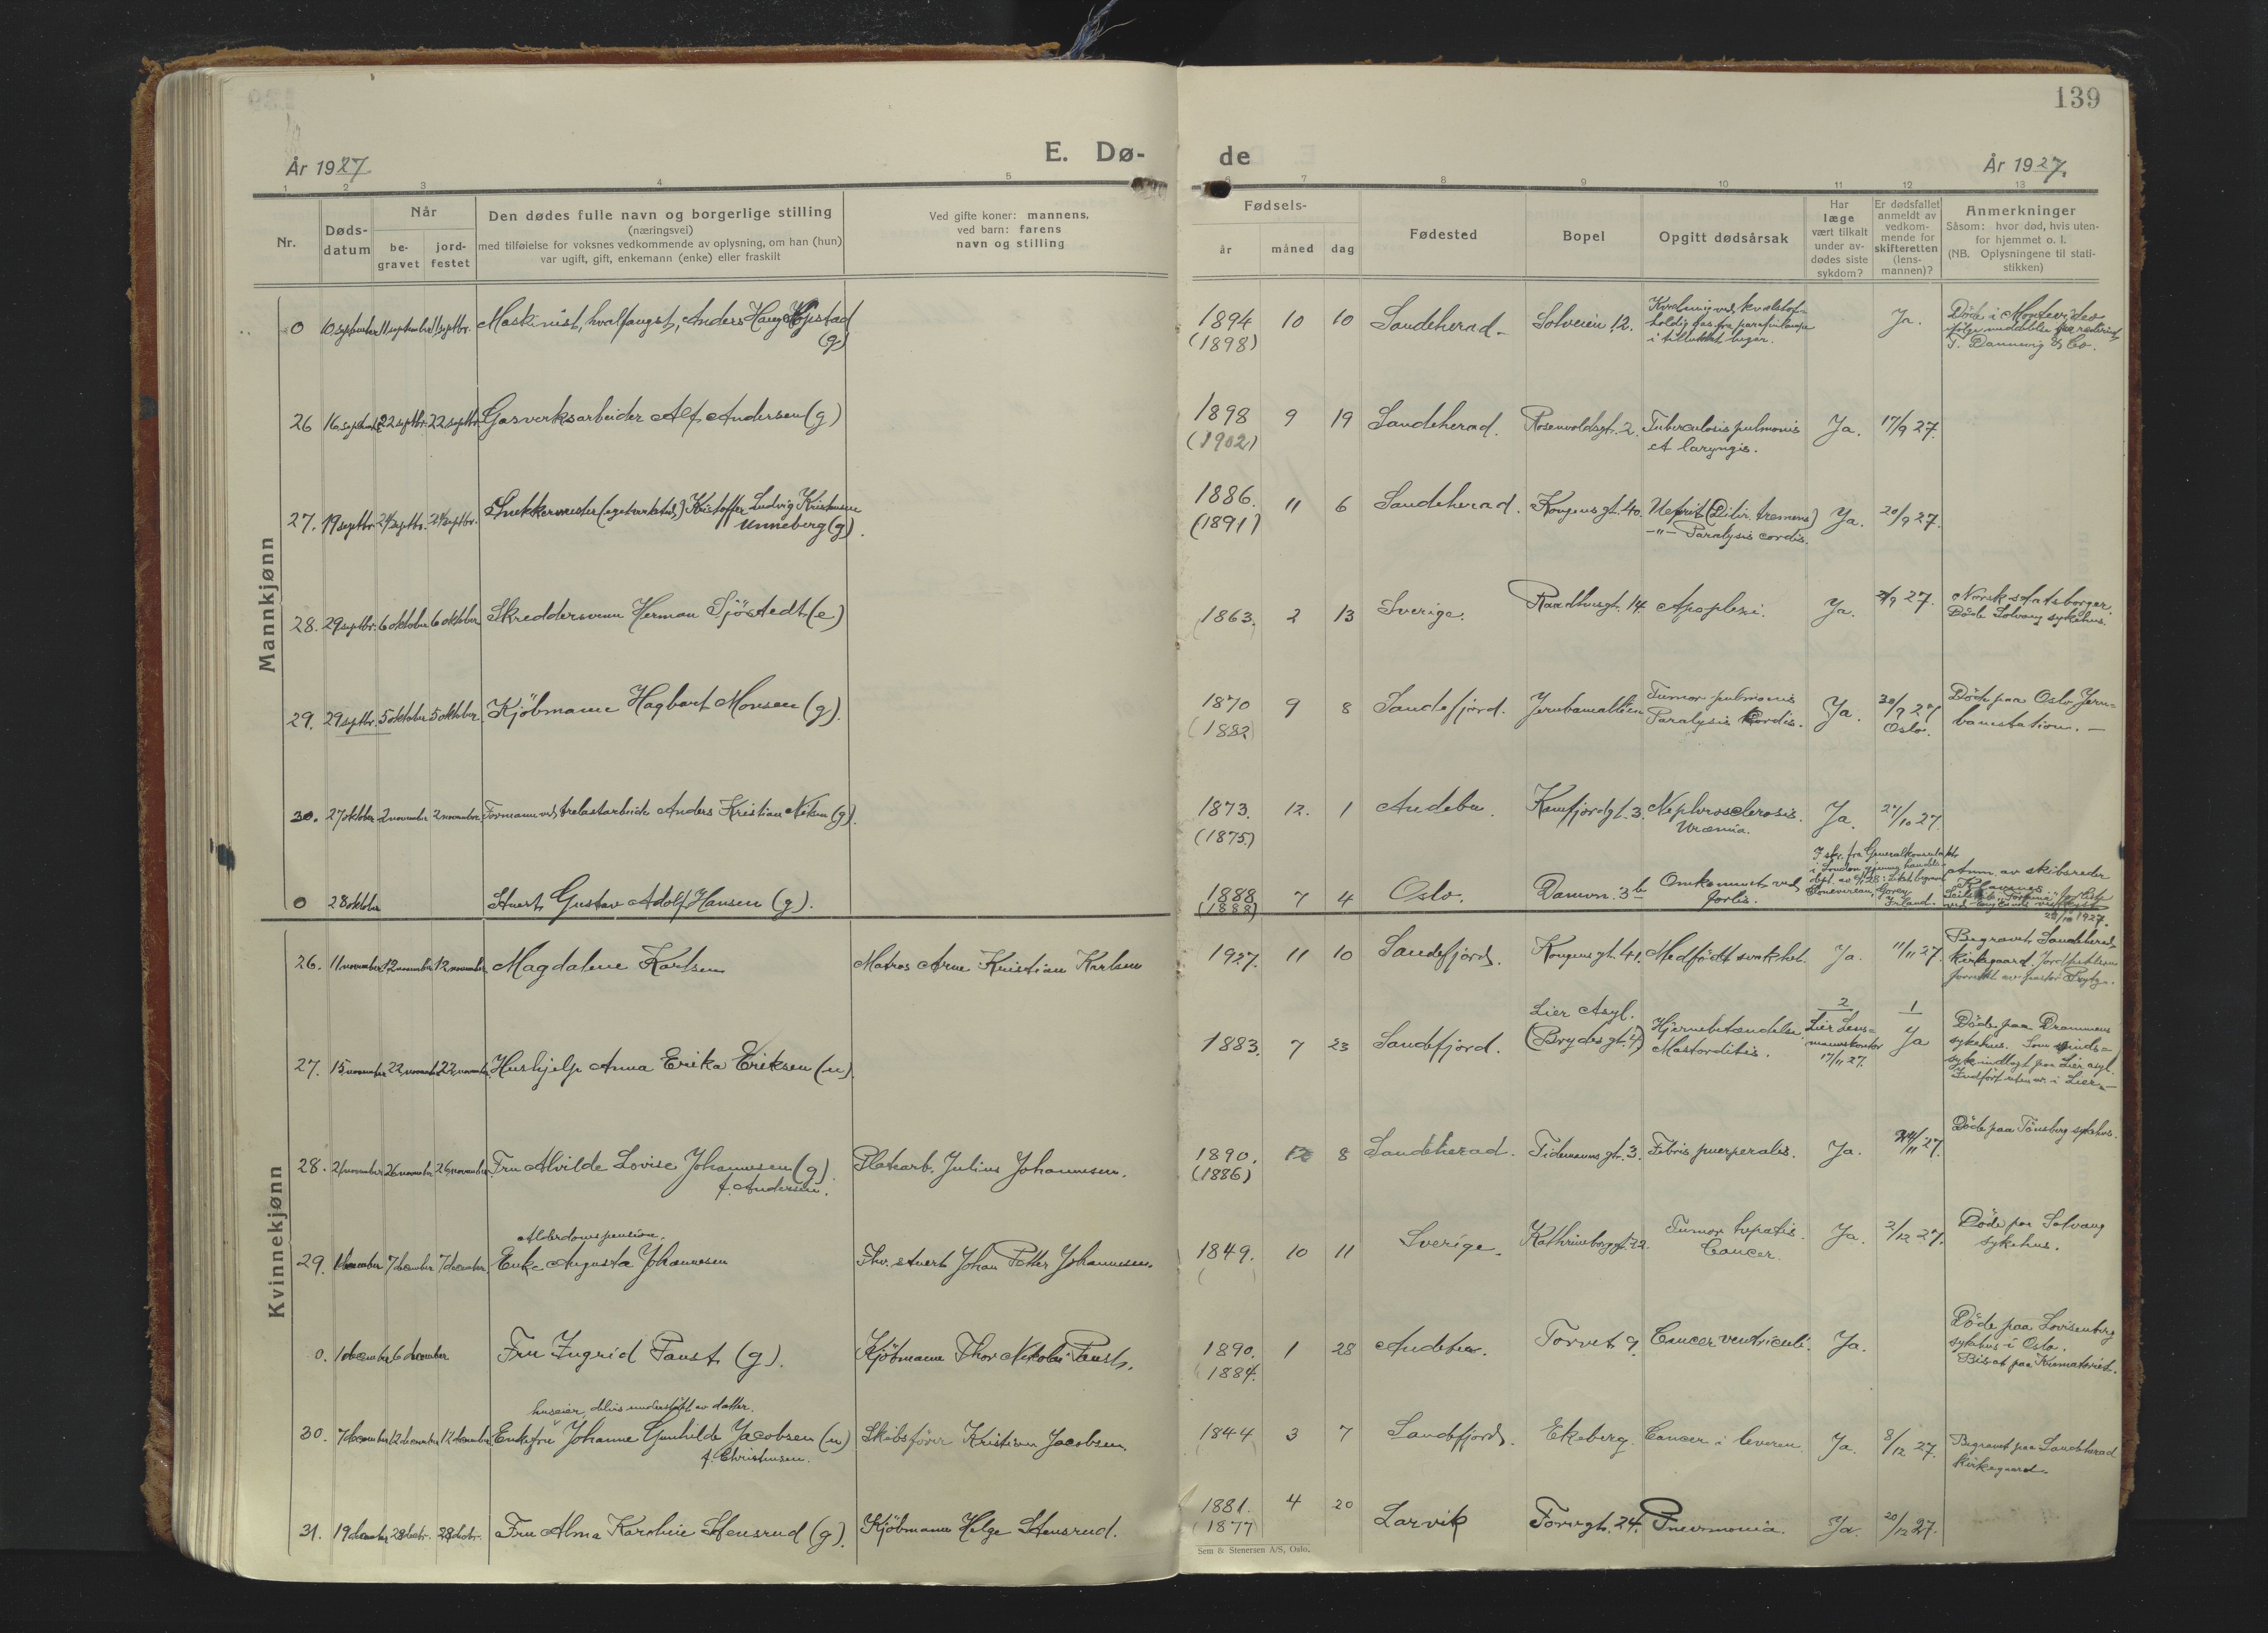 139
År 1927.
E. Dø-
de
År 1927.
1 2 3 4 5 6 7 8 9 10 11 12 13
Nr.
Døds-
datum
Når
be-
gravet
jord-
festet
Den dødes fulle navn og borgerlige stilling
(næringsvei)
med tilføielse for voksnes vedkommende av oplysning, om han (hun)
var ugift, gift, enkemann (enke) eller fraskilt
Ved gifte koner: mannens,
ved barn: farens
navn og stilling
Fødsels-
år
måned
dag
Fødested
Bopel
Opgitt dødsårsak
Har
læge
vært tilkalt
under av-
dødes siste
sykdom?
Er dødsfallet
anmeldt av
vedkom-
mende for
skifteretten
(lens-
mannen)?
Anmerkninger
Såsom: hvor død, hvis uten-
for hjemmet o. l.
(NB. Oplysningene til stati-
stikken)
Mannkjønn
0 10 september 11 september 11 septbr. Maskinist, hvalfangst, Anders Haug
(g)
1894 10 10 Sandeherad. Solveien 12.
(1898)
Kvælning ved kvælstof-
holdig gas fra parafinlampe
i tillukket
Ja.
Døde i Montevideo
ifølge meddelelse fra rederiet
T. Dannevig & Co.
26 16 september 22 septbr. 22 septbr. Gasverksarbeider Alf Andersen (g)
1898 9 19 Sandeherad. Rosenvoldsgt. 2. Tuberculosis pulmonis Ja. 17/9 27.
(1902) et laryngis.
27. 19 septbr. 24 septbr. 24 septbr. Snekkermester (eget verksted) Kristoffer Ludvig Kristensen
Unneberg (g).
1886. 11 6 Sandeherad. Kongens gt. 40. Nefrit (Delir. tremens) Ja. 20/9 27.
(1891) -"- Paralysis cordis.
28. 29 septbr. 6 oktober 6 oktober Skreddersvenn Herman Sjöstedt (e)
1863. 2 13 Sverige. Raadhusgt. 14 Apoplexi. Ja. 27.
Norsk statsborger.
Døde Solvang sykehus.
29. 29 septbr. 5 oktober 5 oktober. Kjöbmann Hagbart Monsen (g).
1870 9 8 Sandefjord. Jernbanealleen Tumor pulmonis
(1882) Paralysis Cordis. Ja. 30/9 27
Oslo.
Döde paa Oslo Jern-
banestation. —
30. 27 oktober 2 november 2 november Formann ved trelastarbeide Anders Kristian (g).
1873. 12. 1 Andebu. Kamfjordgt. 3. Nephrosclerosis. Ja. 27/10 27.
(1875) Uræmia.
0 28 oktober Stuert Gustav Adolf Hansen (g).
1888 7 4 Oslo. Damvn. 3 b Omkommet ved
(1888) forlis.
I skr. fra Generalkonsulatet
i London gjennem handels-
Irland.
anm. av skibsreder
28/10 1927.
Kvinnekjønn
26. 11 november 12 november 12 november Magdalene Karlsen Matros Arne Kristian Karlsen
1927. 11 10 Sandefjord. Kongens gt. 41. Medfödt svakhet. Ja. 11/11 27.
Begravet Sandeherad
kirkegaard. Jordfestelsen
forrettet av pastor
27. 15 november 22 november 22 november Hushjelp Anna Erika Eriksen (u)
1883. 7 23 Sandefjord. Lier Asyl.
(Brydes gt. 4) Hjernebetændelse.
Mastoiditis.
2
Lier Lens-
mannskontor
17/11 27.
1
Ja
Döde paa Drammens
sykehus. Som sinds-
syk indlagt paa Lier asyl.
Indfört uten nr. i Lier. —
28. 21 november 26 november 26 november Fru Alvilde Lovise Johannesen (g)
f. Andersen. Platearb. Julius Johannesen.
1890. 8 Sandeherad. Tidemanns gt. 3. Febris puerperalis. Ja. 24/11 27.
(1886)
Döde paa Tönsberg sykehus.
Alderdomspension.
29. 1 december 7 december 7 december. Enke Augusta Johannesen Fhv. stuert Johan Petter Johannesen.
1849. 10 11 Sverige. Kathrineborggt. 22. Tumor hepatis. Ja. 2/12 27.
Cancer.
Döde paa Solvang
sykehus.
0. 1 december 6 december Fru Ingrid Paust (g). Kjöbmann Thor Nikolai Paust.
1890. 1 28 Andebu. Torvet 9. Cancer ventriculi. Ja.
1884.
Döde paa Lovisenberg
sykehus i Oslo.
Bisat paa Krematoriet.
huseier, delvis understöttet av datter.
30. 7 december 12 december 12 december Enkefru Johanne Gunhilde Jacobsen (u)
f. Christensen. Skibsförer Kristian Jacobsen.
1844 3 7 Sandefjord. Ekeberg. Cancer i leveren. Ja. 8/12 27.
Begravet paa Sandeherad
Kirkegaard.
31. 19 december 28 decbr. 28 decbr. Fru Alma Karoline Stensrud (g). Kjöbmann Helge Stensrud.
1881. 4 20 Larvik Torvgt. 24. Pnevmonia. Ja. 20/12 27.
(1877)
Sem & Stenersen A/S, Oslo.